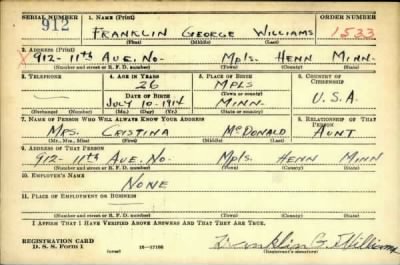 SERIAL NUMBER 1. NAME (Print) ORDER NUMBER
912 FRANKLIN GEORGE WILLIAMS 1533
(First) (Middle) (Last)
2. ADDRESS (Print)
X 912-11th AVE. NO- MPLS. HENN MINN.
(Number and street or R. F. D. number) (Town) (County) (State)
3. TELEPHONE 4. AGE IN YEARS 5. PLACE OF BIRTH 6. COUNTRY OF CITIZENSHIP
26 MPLS
DATE OF BIRTH (Town or county)
JULY 10-1914 MINN. U.S.A.
(Exchange) (Number) (Mo.) (Day) (Yr.) (State or country)
7. NAME OF PERSON WHO WILL ALWAYS KNOW YOUR ADDRESS 8. RELATIONSHIP OF THAT PERSON
MRS. CRISTINA McDONALD AUNT
(Mr., Mrs., Miss) (First) (Middle) (Last)
9. ADDRESS OF THAT PERSON
912-11th AVE. NO. MPLS. HENN MINN
(Number and street or R. F. D. number) (Town) (County) (State)
10. EMPLOYER'S NAME
NONE
11. PLACE OF EMPLOYMENT OR BUSINESS
(Number and street or R. F. D. number) (Town) (County) (State)
I AFFIRM THAT I HAVE VERIFIED ABOVE ANSWERS AND THAT THEY ARE TRUE.
REGISTRATION CARD
D. S. S. Form 1 16-17105 Franklin G. Williams
(Registrant's signature)